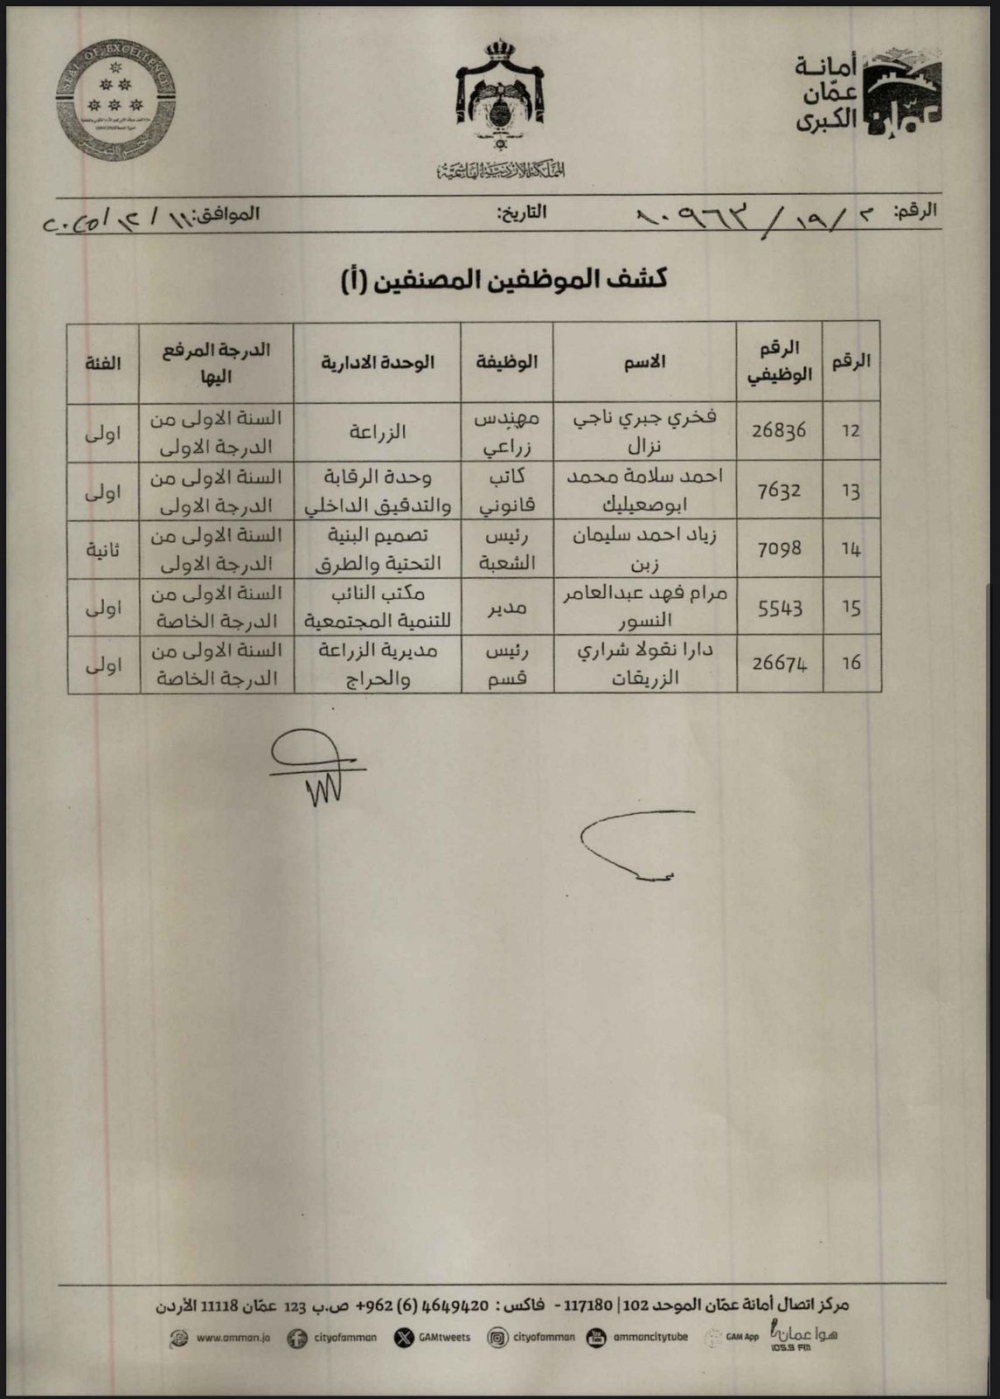 SEAL OF EXCELLENCE
المملكة الأردنية الهاشمية
أمانة
عمّان
الكبرى
الرقم: ٢/١٩/١٠٩٦٣ التاريخ: الموافق: ١١/١٢/٢٠٢٥
كشف الموظفين المصنفين (أ)
الرقم الرقم الوظيفي الاسم الوظيفة الوحدة الادارية الدرجة المرفع اليها الفئة
12 26836 فخري جبري ناجي نزال مهندس زراعي الزراعة السنة الاولى من الدرجة الاولى اولى
13 7632 احمد سلامة محمد ابوصعيليك كاتب قانوني وحدة الرقابة والتدقيق الداخلي السنة الاولى من الدرجة الاولى اولى
14 7098 زياد احمد سليمان زبن رئيس الشعبة تصميم البنية التحتية والطرق السنة الاولى من الدرجة الاولى ثانية
15 5543 مرام فهد عبدالعامر النسور مدير مكتب النائب للتنمية المجتمعية السنة الاولى من الدرجة الخاصة اولى
16 26674 دارا نقولا شراري الزريقات رئيس قسم مديرية الزراعة والحراج السنة الاولى من الدرجة الخاصة اولى
مركز اتصال أمانة عمّان الموحد 102 | 117180 - فاكس : 4649420 (6) 962+ ص.ب 123 عمّان 11118 الأردن
www.amman.jo cityofamman GAMtweets cityofamman ammancitytube GAM App هوا عمان
105.9 FM